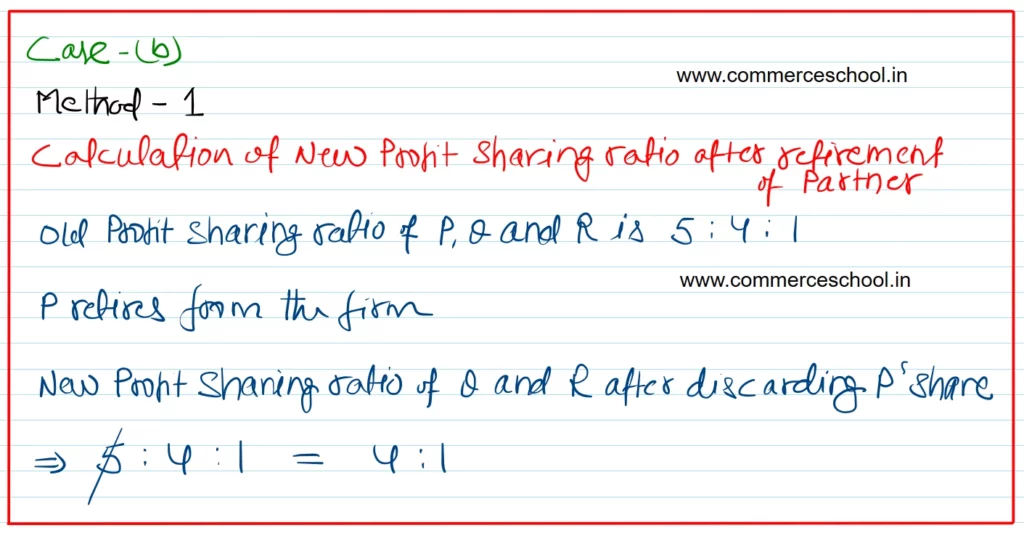 Case - (b)
www.commerceschool.in
Method - 1
Calculation of New Profit Sharing ratio after retirement
of Partner
Old Profit Sharing ratio of P, Q and R is 5 : 4 : 1
www.commerceschool.in
P retires from the firm
New Profit Sharing ratio of Q and R after discarding P's share
⇒ 5 : 4 : 1 = 4 : 1